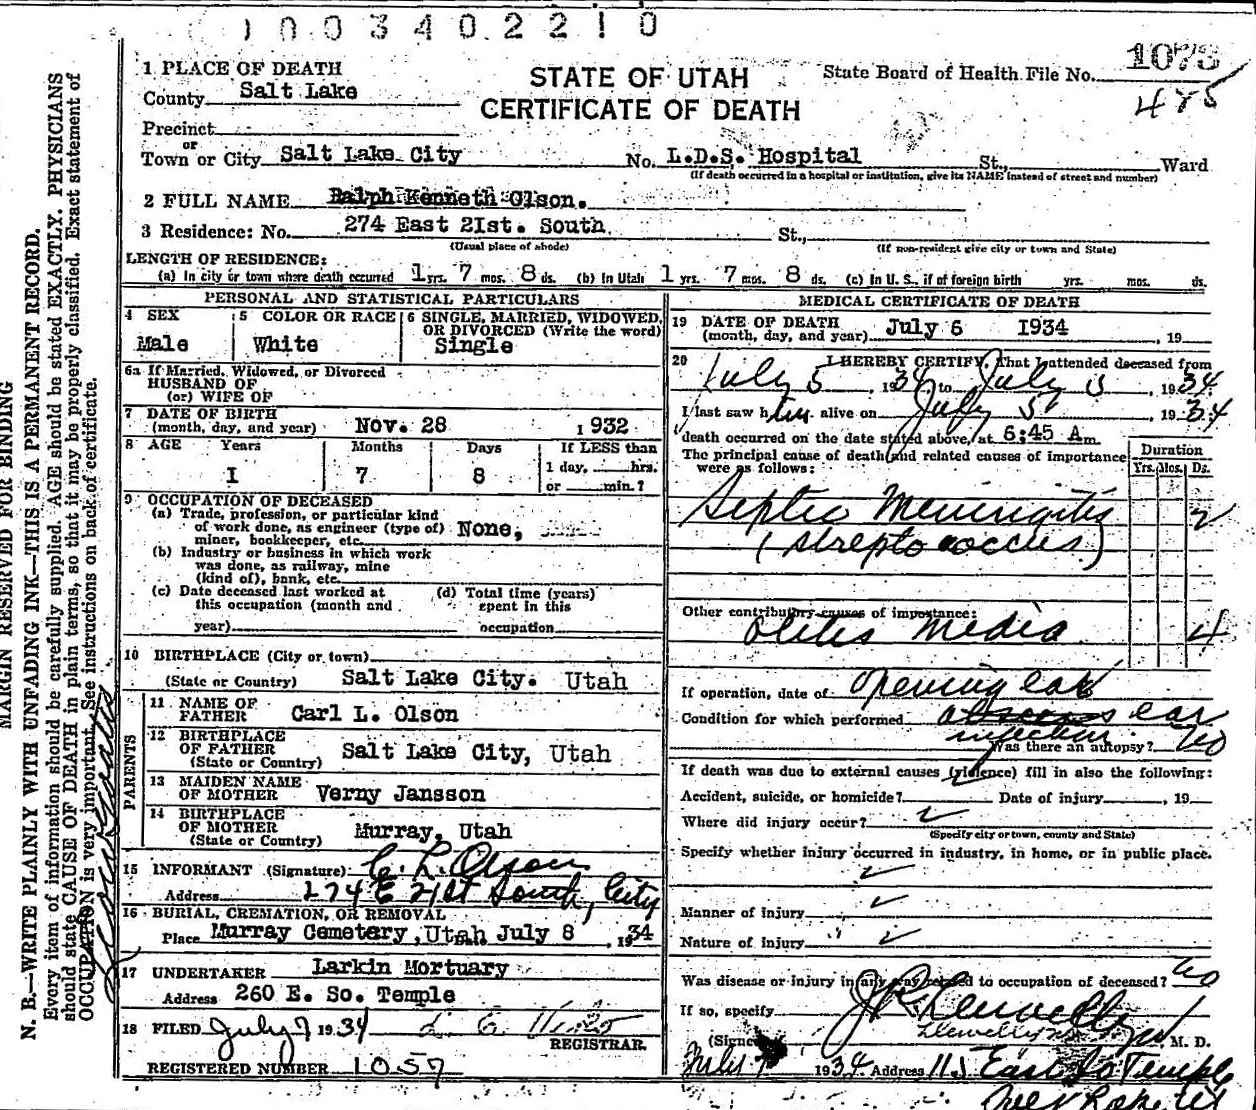 1003402210
1 PLACE OF DEATH
County Salt Lake
STATE OF UTAH
CERTIFICATE OF DEATH
State Board of Health File No. 1073
485
Precinct
or
Town or City Salt Lake City No. L.D.S. Hospital St., Ward
(If death occurred in a hospital or institution, give its NAME instead of street and number)
2 FULL NAME Ralph Kenneth Olson.
3 Residence: No. 274 East 2Ist. South St.,
(Usual place of abode) (If non-resident give city or town and State)
LENGTH OF RESIDENCE:
(a) In city or town where death occurred 1 yrs. 7 mos. 8 ds. (b) In Utah 1 yrs. 7 mos. 8 ds. (c) In U. S., if of foreign birth yrs. mos. ds.
PERSONAL AND STATISTICAL PARTICULARS
4 SEX
Male
5 COLOR OR RACE
White
6 SINGLE, MARRIED, WIDOWED,
OR DIVORCED (Write the word)
Single
6a If Married, Widowed, or Divorced
HUSBAND OF
(or) WIFE OF
7 DATE OF BIRTH
(month, day, and year) Nov. 28 1932
8 AGE Years Months Days If LESS than
I 7 8 1 day, hrs.
or min.?
9 OCCUPATION OF DECEASED
(a) Trade, profession, or particular kind
of work done, as engineer (type of)
miner, bookkeeper, etc. None,
(b) Industry or business in which work
was done, as railway, mine
(kind of), bank, etc.
(c) Date deceased last worked at
this occupation (month and
year)
(d) Total time (years)
spent in this
occupation
10 BIRTHPLACE (City or town)
(State or Country) Salt Lake City. Utah
PARENTS
11 NAME OF
FATHER Carl L. Olson
12 BIRTHPLACE
OF FATHER
(State or Country) Salt Lake City, Utah
13 MAIDEN NAME
OF MOTHER Verny Jansson
14 BIRTHPLACE
OF MOTHER
(State or Country) Murray, Utah
15 INFORMANT (Signature) C. L. Olson
Address 274 E 21st South, City
16 BURIAL, CREMATION, OR REMOVAL
Place Murray Cemetery, Utah July 8, 1934
17 UNDERTAKER Larkin Mortuary
Address 260 E. So. Temple
18 FILED July 7 1934
REGISTRAR.
REGISTERED NUMBER 1057
MEDICAL CERTIFICATE OF DEATH
19 DATE OF DEATH
(month, day, and year) July 6 1934, 19
20 I HEREBY CERTIFY, That I attended deceased from
July 5 1934 to July 5, 1934
I last saw him alive on July 5, 1934
death occurred on the date stated above, at 6:45 Am.
The principal cause of death and related causes of importance
were as follows:
Duration
Yrs. Mos. Ds.
Septic Meningitis 2
(streptococcus)
Other contributory causes of importance:
Otitis Media 4
If operation, date of opening ear
Condition for which performed abscess ear
infection.
Was there an autopsy? No
If death was due to external causes (violence) fill in also the following:
Accident, suicide, or homicide? Date of injury, 19
Where did injury occur?
(Specify city or town, county and State)
Specify whether injury occurred in industry, in home, or in public place.
Manner of injury
Nature of injury
Was disease or injury in any way related to occupation of deceased? No
If so, specify
(Signed) J R Llewellyn M. D.
Llewellyn
July 7 1934 Address 115 East So Temple
MARGIN RESERVED FOR BINDING
N. B.—WRITE PLAINLY WITH UNFADING INK—THIS IS A PERMANENT RECORD.
Every item of information should be carefully supplied. AGE should be stated EXACTLY. PHYSICIANS
should state CAUSE OF DEATH in plain terms, so that it may be properly classified. Exact statement of
OCCUPATION is very important. See instructions on back of certificate.